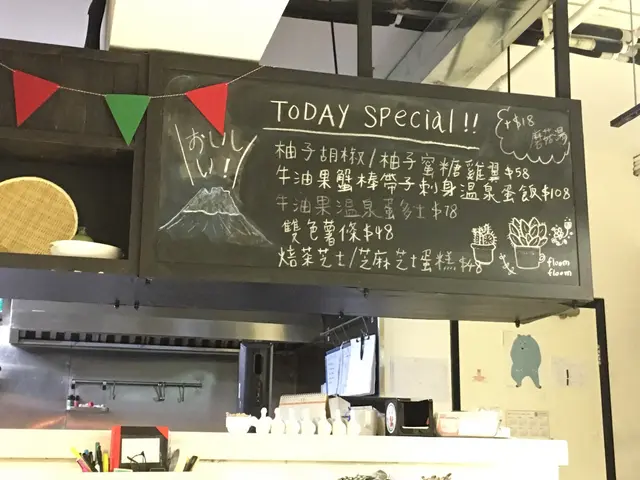 TODAY SPecial!!
+$18
蘑菇湯
おいし
い!
柚子胡椒/柚子蜜糖雞翼 $58
牛油果蟹棒帶子刺身溫泉蛋飯 $108
牛油果溫泉蛋多士 $78
雙色薯條 $48
焙茶芝士/芝麻芝士蛋糕 $48
floom
floom